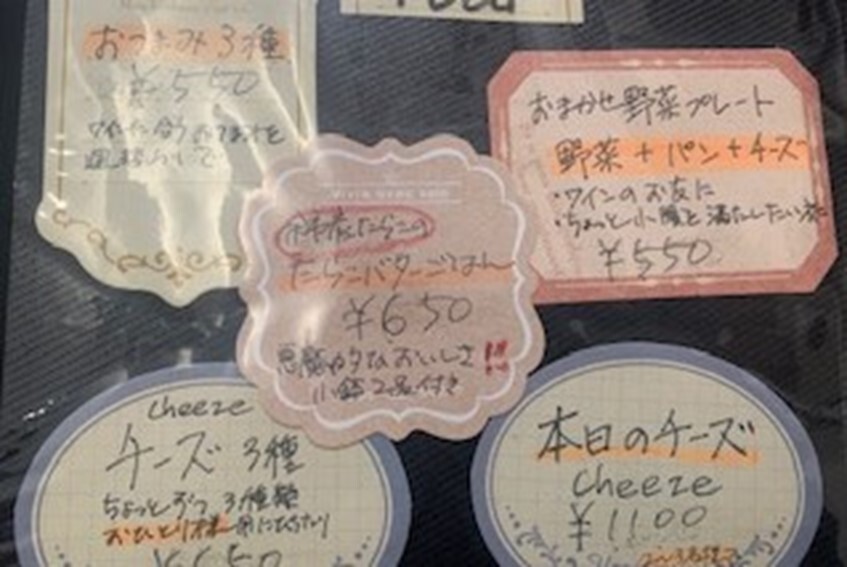 Food
おつまみ3種
¥550
ワインに合うおつまみを
おまかせ野菜プレート
野菜+パン+チーズ
・ワインのお友に
・ちょっと小腹を満たしたい
¥550
たらこの
たらこバターごはん
¥650
悪魔的なおいしさ!!
小鉢2品付き
cheeze
チーズ 3種
ちょっとずつ 3種類
おひとり様用にぴったり
¥650
本日のチーズ
cheeze
¥1100